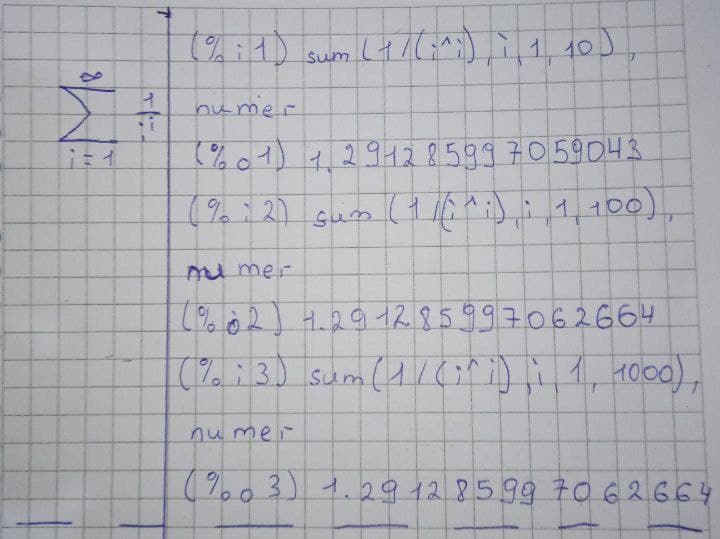 ∞
∑ 1/i^i
i = 1
(% i 1) sum (1/(i^i), i, 1, 10),
numer
(% o 1) 1.291285997059043
(% i 2) sum (1/(i^i), i, 1, 100),
numer
(% o 2) 1.291285997062664
(% i 3) sum (1/(i^i), i, 1, 1000),
numer
(% o 3) 1.291285997062664